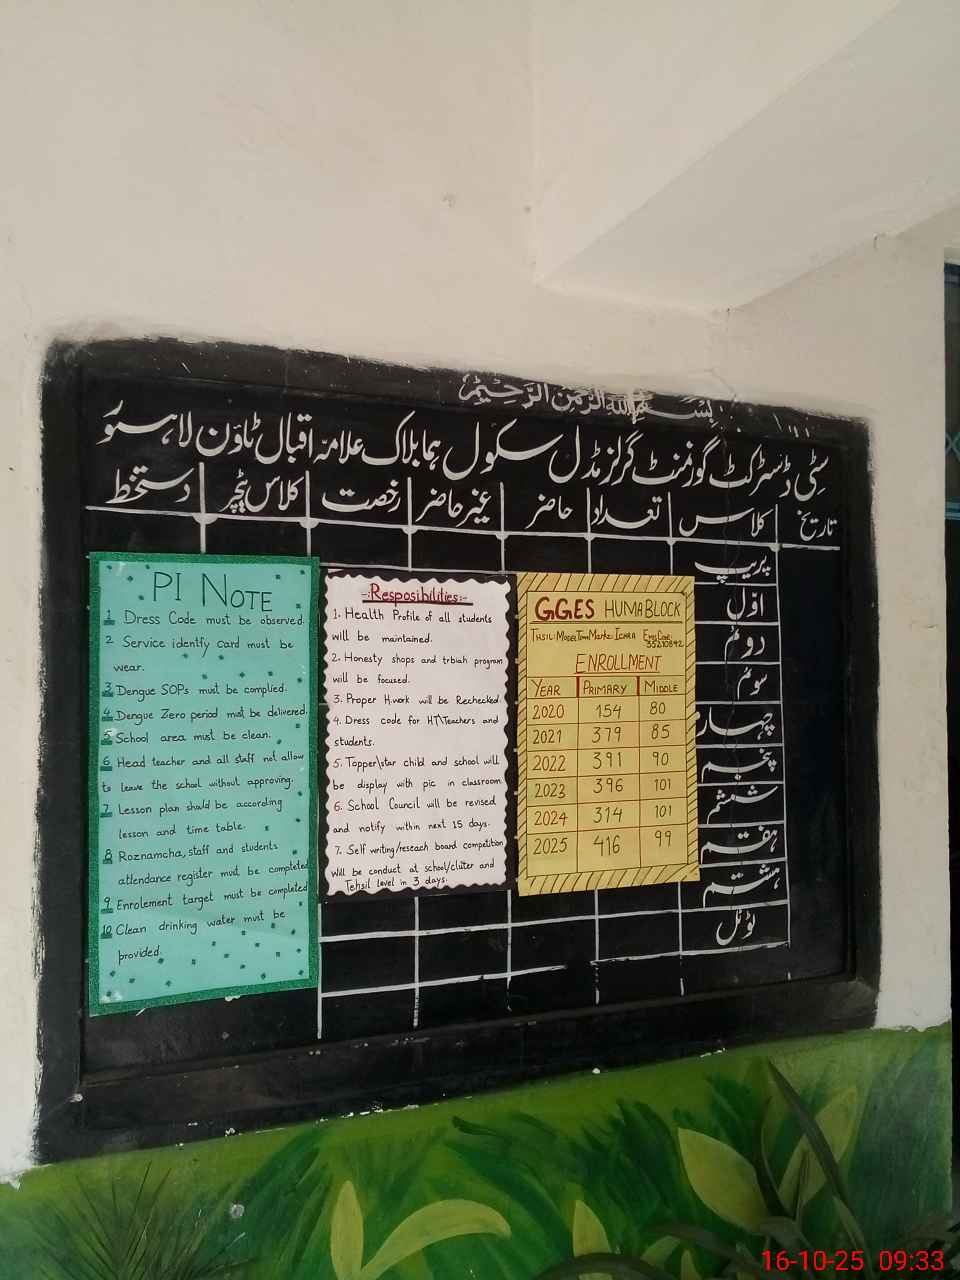 بِسْمِ اللهِ الرَّحْمٰنِ الرَّحِيْمِ
سٹی ڈسٹرکٹ گورنمنٹ گرلز مڈل سکول ہما بلاک علامہ اقبال ٹاؤن لاہور
تاریخ کلاس تعداد حاضر غیر حاضر رخصت کلاس ٹیچر دستخط
پریپ
اوّل
دوئم
سوئم
چہارم
پنجم
ششم
ہفتم
ہشتم
ٹوٹل
PI NOTE
1 Dress Code must be observed.
2 Service identfy card must be
wear.
3 Dengue SOPs must be complied.
4 Dengue Zero period must be delivered.
5 School area must be clean.
6 Head teacher and all staff not allow
to leave the school without approving.
7 Lesson plan should be according
lesson and time table.
8 Roznamcha, staff and students
attendance register must be completed
9 Enrolement target must be completed
10 Clean drinking water must be
provided.
-:Resposibilities:-
1. Health Profile of all students
will be maintained.
2. Honesty shops and trbiah program
will be focused.
3. Proper H.work will be Rechecked.
4. Dress code for HT\Teachers and
students.
5. Topper\star child and school will
be display with pic in classroom.
6. School Council will be revised
and notify within next 15 days.
7. Self writing/reseach board competition
will be conduct at school/cluter and
Tehsil level in 3 days.
G.GES HUMA BLOCK
Thsil: Model Town Markz: Ichra Emis Code: 35210892
ENROLLMENT
YEAR PRIMARY MIDDLE
2020 154 80
2021 379 85
2022 391 90
2023 396 101
2024 314 101
2025 416 99
16-10-25 09:33